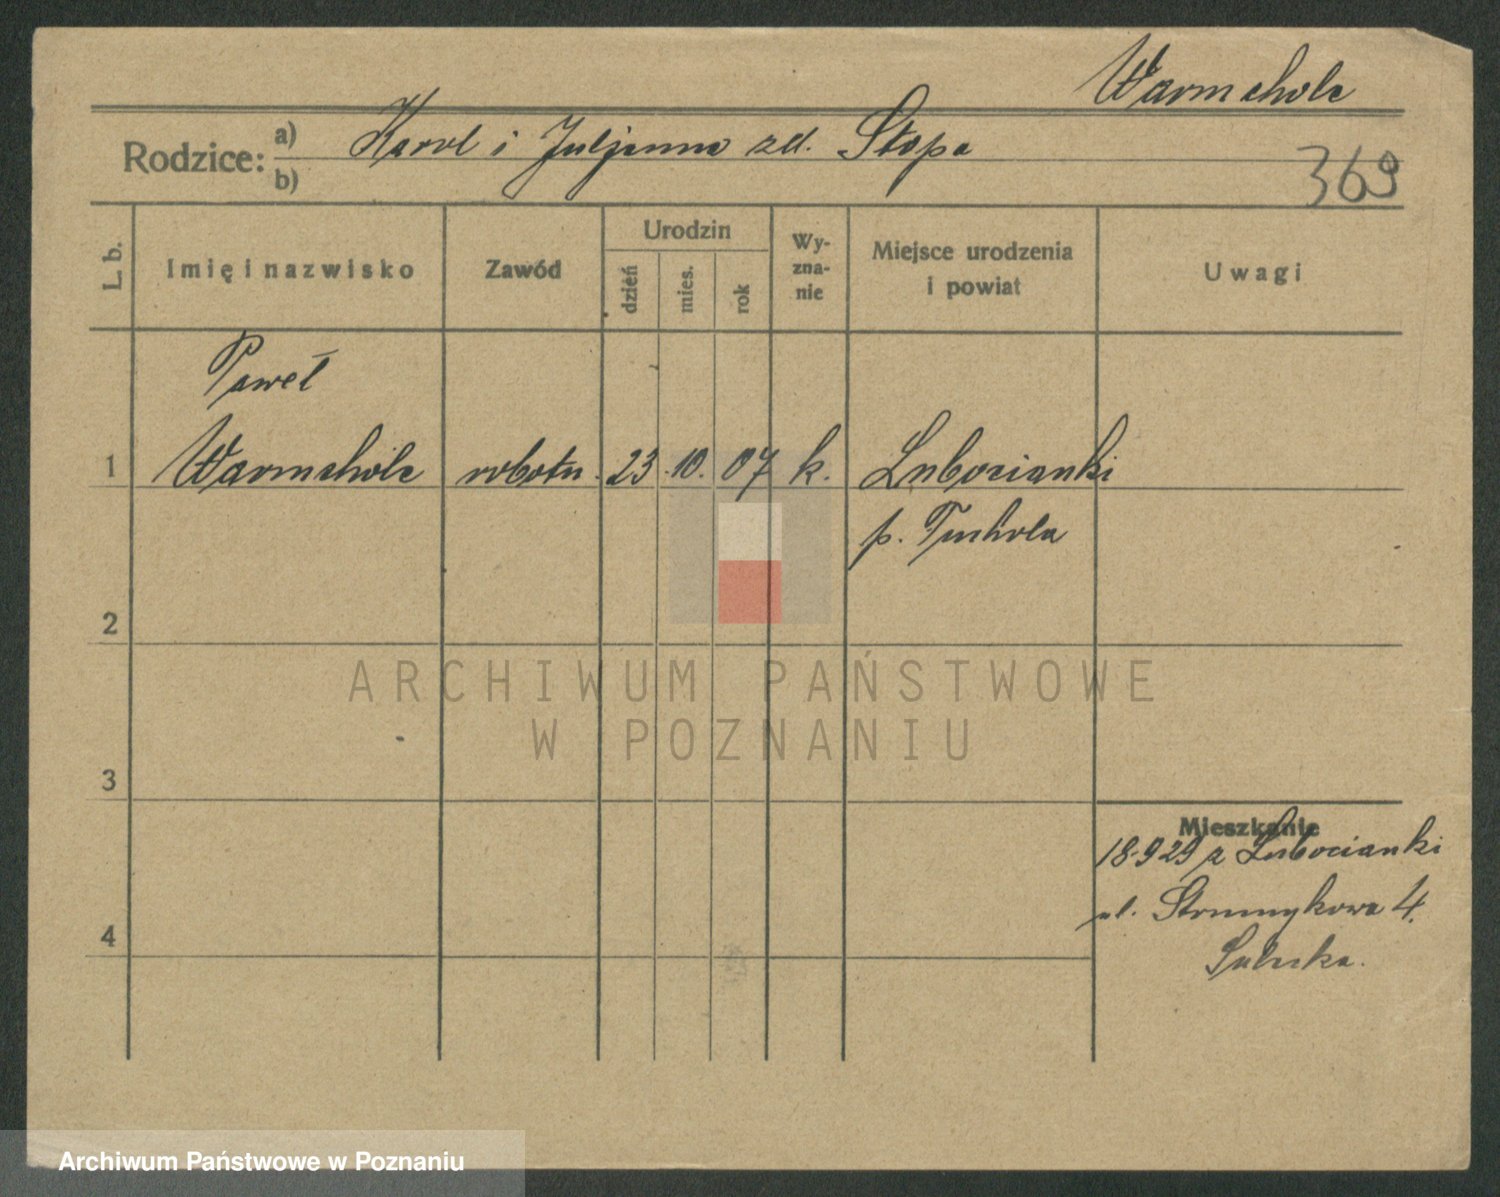 Warmcholc
Rodzice: a) Karol i Juljanna zd. Stopa
b)
369
L. b.
Imię i nazwisko
Zawód
Urodzin
dzień
mies.
rok
Wy-
zna-
nie
Miejsce urodzenia
i powiat
Uwagi
Paweł
1 Warmcholc robotn. 23 .10. 07 k. Lubocianki
p. Tuchola
2
ARCHIWUM PAŃSTWOWE
W POZNANIU
3
Mieszkanie
18.9 29 z Lubocianki
ul. Strumykowa 4.
4
Archiwum Państwowe w Poznaniu